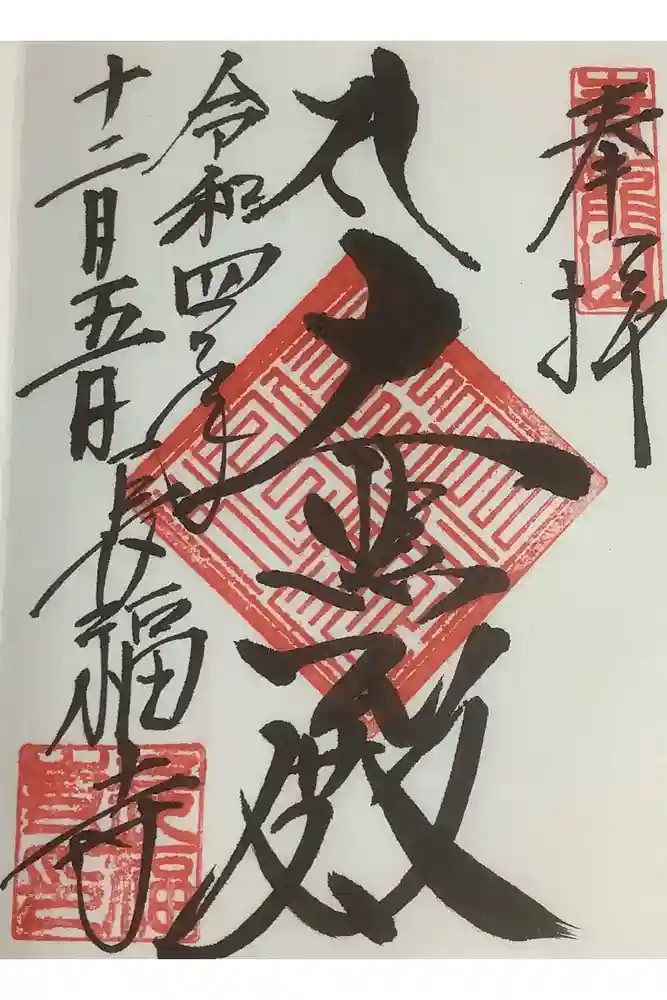 奉拝
大悲殿
令和四年
十二月五日
長福寺
長福
寺印